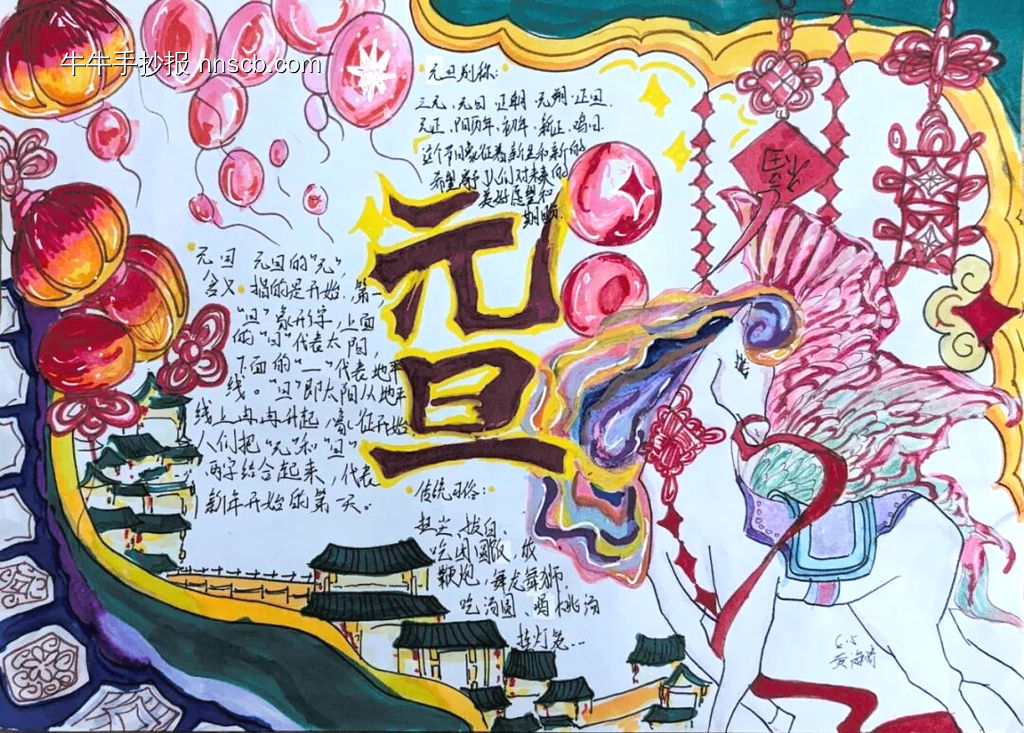 牛牛手抄报 nnscb.com
元旦别称:
三元、元日、正朝、元朔、正旦、
元正、
初年、新正、鸡日
这个节日象征着新生和新的
希望寄予人们对未来的
美好愿望和
期盼.
元旦
元旦 元旦的“元”,
含义 指的是开始、第一,
“旦”象形字,上面
的“日”代表太阳,
下面的“一”代表地平
线。“旦”即太阳从地平
线上冉冉升起,象征开始,
人们把“元”和“旦”
两字结合起来,代表
新年开始的第一天。
传统习俗:
赶岁、拔白、
吃团圆饭,放
鞭炮,舞龙舞狮
吃汤圆、喝桃汤
挂灯笼...
福
6.5